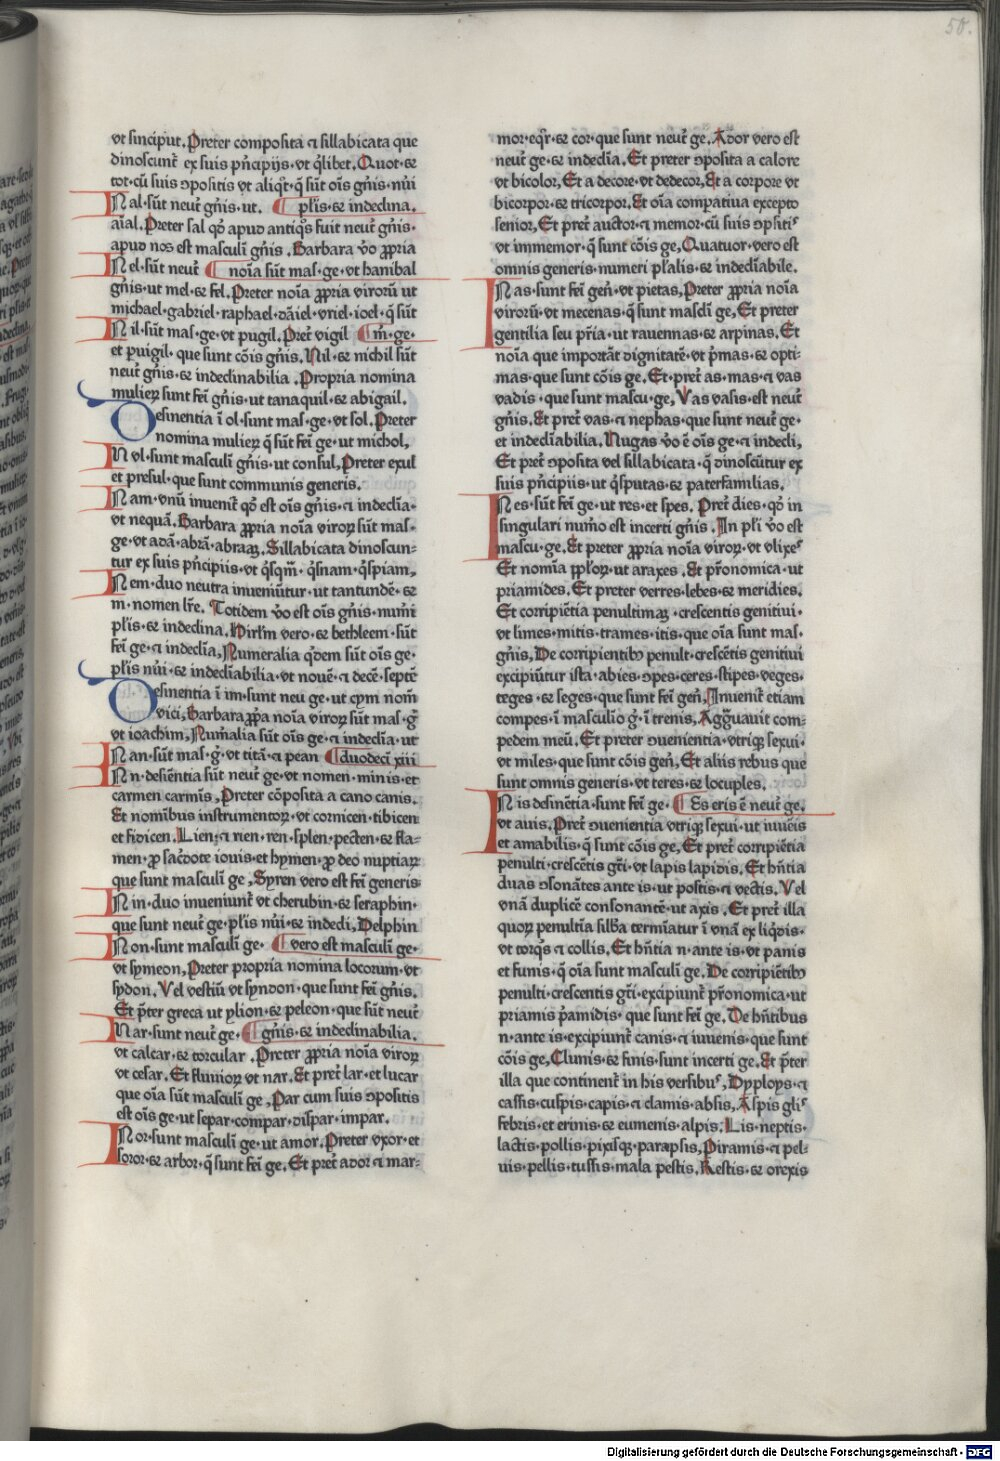 50.
vt sinciput. Preter composita ⁊ sillabicata que
dinoscunt̄ ex suis pn̄cipijs. vt q̄libet. Quot. ⁊
tot. cū suis ɔpositis vt aliq°t. q̄ sūt oīs gn̄is. nūi
IN al. sūt neut̄ gn̄is. ut. ¶ pl̄is. ⁊ indeclina.
aīal. Preter sal qd̓ apud antiq°s fuit neut̄ gn̄is.
apud nos est masculī gn̄is. Barbara v̓o ꝓpria
IN el. sūt neut̄ ¶ noīa sūt mas. ge. vt hanibal
gn̄is. ut mel. ⁊ fel. Preter noīa ꝓpria virorū ut
michael. gabriel. raphael. dāiel. vriel. ioel. q̄ sūt
IN il. sūt mas. ge. vt pugil. Pret̄ vigil ¶ m̄. ge.
et puigil. que sunt cōis gn̄is. Nil. ⁊ nichil sūt
neut̄ gn̄is. ⁊ indeclinabilia. Propria nomina
mulieꝝ sunt fēi gn̄is. ut tanaquil. ⁊ abigail.
Desinentia ī ol. sunt mas. ge. vt sol. Preter
nomina mulieꝝ q̄ sūt fēi ge. ut michol,
IN vl. sunt masculi gn̄is. ut consul, Preter exul
et presul. que sunt communis generis.
IN am. vnū invenit̄ qd̓ est oīs gn̄is. ⁊ indeclīa.
vt nequā. Barbara ꝓpria noīa viroꝝ sūt mas.
ge. vt adā. abrā. abraaꝫ. Sillabicata dinoscun-
tur ex suis pn̄cipiis. vt q̄sqm̄. q̄snam. q̄spiam,
IN em. duo neutra inveniūtur. ut tantundē. ⁊
m. nomen lr̄e. Totidem v̓o est oīs gn̄is. num̄i
pl̄is. ⁊ indeclina. Hirl̄m vero. ⁊ bethleem. sūt
fēi ge. ⁊ indeclīa, Numeralia q̄dem sūt oīs ge.
pl̄is nūi. ⁊ indeclīabilia. vt nouē. ⁊ decē. septē
Desinentia ī im. sunt neu ge. ut cym nom̄
vici, Barbara ꝓp̄a noīa viroꝝ sūt mas. ḡ
vt ioachim, Num̄alia sūt oīs ge. ⁊ indeclīa. ut
IN an. sūt mas. ḡ. vt titā. ⁊ pean ¶ duodecī xiii
IN n. desiēntia sūt neut̄ ge. vt nomen. minis. et
carmen carmīs, Preter cōposita a cano canis.
Et nomībus instrumentoꝝ. vt cornicen. tibicen
et fidicen. Lien. ⁊ rien. ren. splen. pecten. ⁊ fla-
men. ꝓ sac̄dote iouis. et hymen. ꝓ deo nuptiaꝝ
que sunt masculī ge, Syren vero est fēi generis.
IN in. duo inveniunt̄ vt cherubin. ⁊ seraphin.
que sunt neut̄ ge. pl̄is nūi. ⁊ indecli, Delphin
IN on. sunt masculī ge. ¶ vero est masculī ge.
vt symeon, Preter propria nomina locorum. vt
sydon. Vel vestiū vt syndon. que sunt fēi gn̄is.
Et p̄ter greca ut ylion. ⁊ peleon. que sūt neut̄
IN ar. sunt neut̄ ge. ¶ gn̄is. ⁊ indeclinabilia.
vt calcar. ⁊ torcular. Preter ꝓpria noīa viroꝝ
vt cesar. Et fluvioꝝ vt nar. Et pret̄ lar. et lucar
que oīa sūt masculī ge, Par cum suis ɔpositis
est oīs ge. ut separ. compar. dispar. impar.
IN or. sunt masculī ge. ut amor. Preter vxor. et
soror. ⁊ arbor. q̄ sunt fēi ge, Et pret̄ ador ⁊ mar-
mor. eqr̄. ⁊ cor. que sunt neut̄ ge. Ador vero est
neut̄ ge. ⁊ indeclīa. Et preter ɔposita a calore
vt bicolor, Et a decore. vt dedecor, Et a corpore vt
bicorpor. ⁊ tricorpor. Et oīa compatiua excepto
senior, Et pret̄ auctor. ⁊ memor. cū suis ɔpsiti⁹
vt immemor. q̄ sunt cōis ge, Quatuor. vero est
omnis generis. numeri pl̄alis. ⁊ indeclīabile.
IN as. sunt fēi gen̄. vt pietas, Preter ꝓpria noīa
virorū. vt mecenas. q̄ sunt mascl̄i ge, Et preter
gentilia seu pr̄ia. ut rauennas. ⁊ arpinas. Et
noīa que importāt dignitatē. vt p̄mas. ⁊ opti-
mas. que sunt cōis ge. Et. pret̄ as. mas. ⁊ vas
vadis. que sunt mascu. ge, Vas vasis. est neut̄
gn̄is. Et pret̄ vas. ⁊ nephas. que sunt neut̄ ge.
et indeclīabilia. Nugas v̓o ē oīs ge. ⁊ indecli,
Et pret̄ ɔposita vel sillabicata. q̄ dinoscūtur ex
suis pn̄cipiis. ut q̄sputas. ⁊ paterfamilias.
IN es. sūt fēi ge. ut res. et spes. Pret̄ dies. qd̓ in
singulari num̄o est incerti gn̄is. In pl̄i v̓o est
mascu. ge. Et preter ꝓpria noīa viroꝝ. vt vlixe⁹
Et nomīa ppl̓oꝝ. ut araxes. Et pr̄onomica. ut
priamides. Et preter verres. lebes. ⁊ meridies.
Et corripiētia penultimaꝫ. crescentis genitiui.
vt limes. mitis. trames. itis. que oīa sunt mas.
gn̄is, De corripientibꝫ penult. crescētis genitiui
excipiūtur ista. abies. ɔpes. ceres. stipes. veges.
teges. ⁊ seges. que sunt fēi gen̄, Invenit̄ etiam
compes. ī masculio ḡ. ī trenis, Aggrauit com-
pedem meū. Et preter ɔuenientia. vtriqꝫ sexui.
vt miles. que sunt cōis gen̄, Et aliis rebus que
sunt omnis generis. vt teres. ⁊ locuples.
IN is desinētia. sunt fēi ge. ¶ Es eris ē neut̄ ge.
vt auis. Pret̄ ɔuenientia vtriqꝫ sexui. ut iuuēis
et amabilis. q̄ sunt cōis ge, Et pret̄ corripiētia
penulti. crescētis gt̄i. vt lapis lapidis. Et hn̄tia
duas ɔsonātes ante is. ut postis. ⁊ vectis. Vel
vnā duplicē consonantē. ut axis. Et pret̄ illa
quoꝝ penultīa sill̄ba termīatur ī vnā ex liq̄dis.
vt torq̄s ⁊ collis. Et hn̄tia n. ante is. vt panis
et funis. q̄ oīa sunt masculī ge. De corripiētibꝫ
penulti. crescentis gt̄i. excipiunt̄ pr̄onomica. ut
priamis p̄amidis. que sunt fēi ge. De hn̄tibus
n. ante is. excipiunt̄ canis. ⁊ iuuenis. que sunt
cōis ge, Clunis. ⁊ finis. sunt incerti ge. Et p̄ter
illa que continent̄ in his versibu⁹, Dyploys. ⁊
cassis. cuspis. capis. ⁊ clamis. absis, Aspis gli⁹
febris. et erinis. ⁊ eumenis. alpis. Lis. neptis.
lactis. pollis. pixisqꝫ. parapsis, Piramis. ⁊ pel-
uis. pellis. tussis. mala pestis. Restis. ⁊ orexis
Digitalisierung gefördert durch die Deutsche Forschungsgemeinschaft - DFG